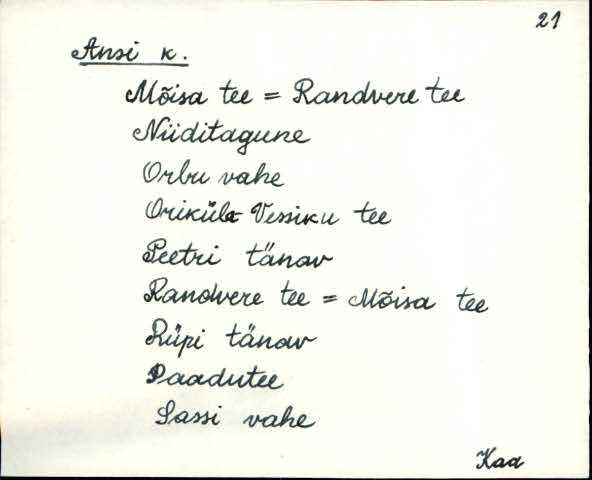 21
Ansi k.
Mõisa tee = Randvere tee
Niiditagune
Orbu vahe
Oriküla-Vessiku tee
Peetri tänav
Randvere tee = Mõisa tee
Rüpi tänav
Saadutee
Sassi vahe
Kaa